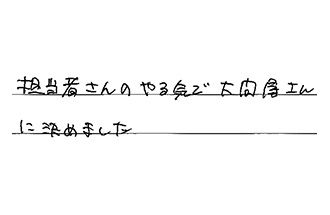 担当者さんのやる気で大関屋さん
に決めました